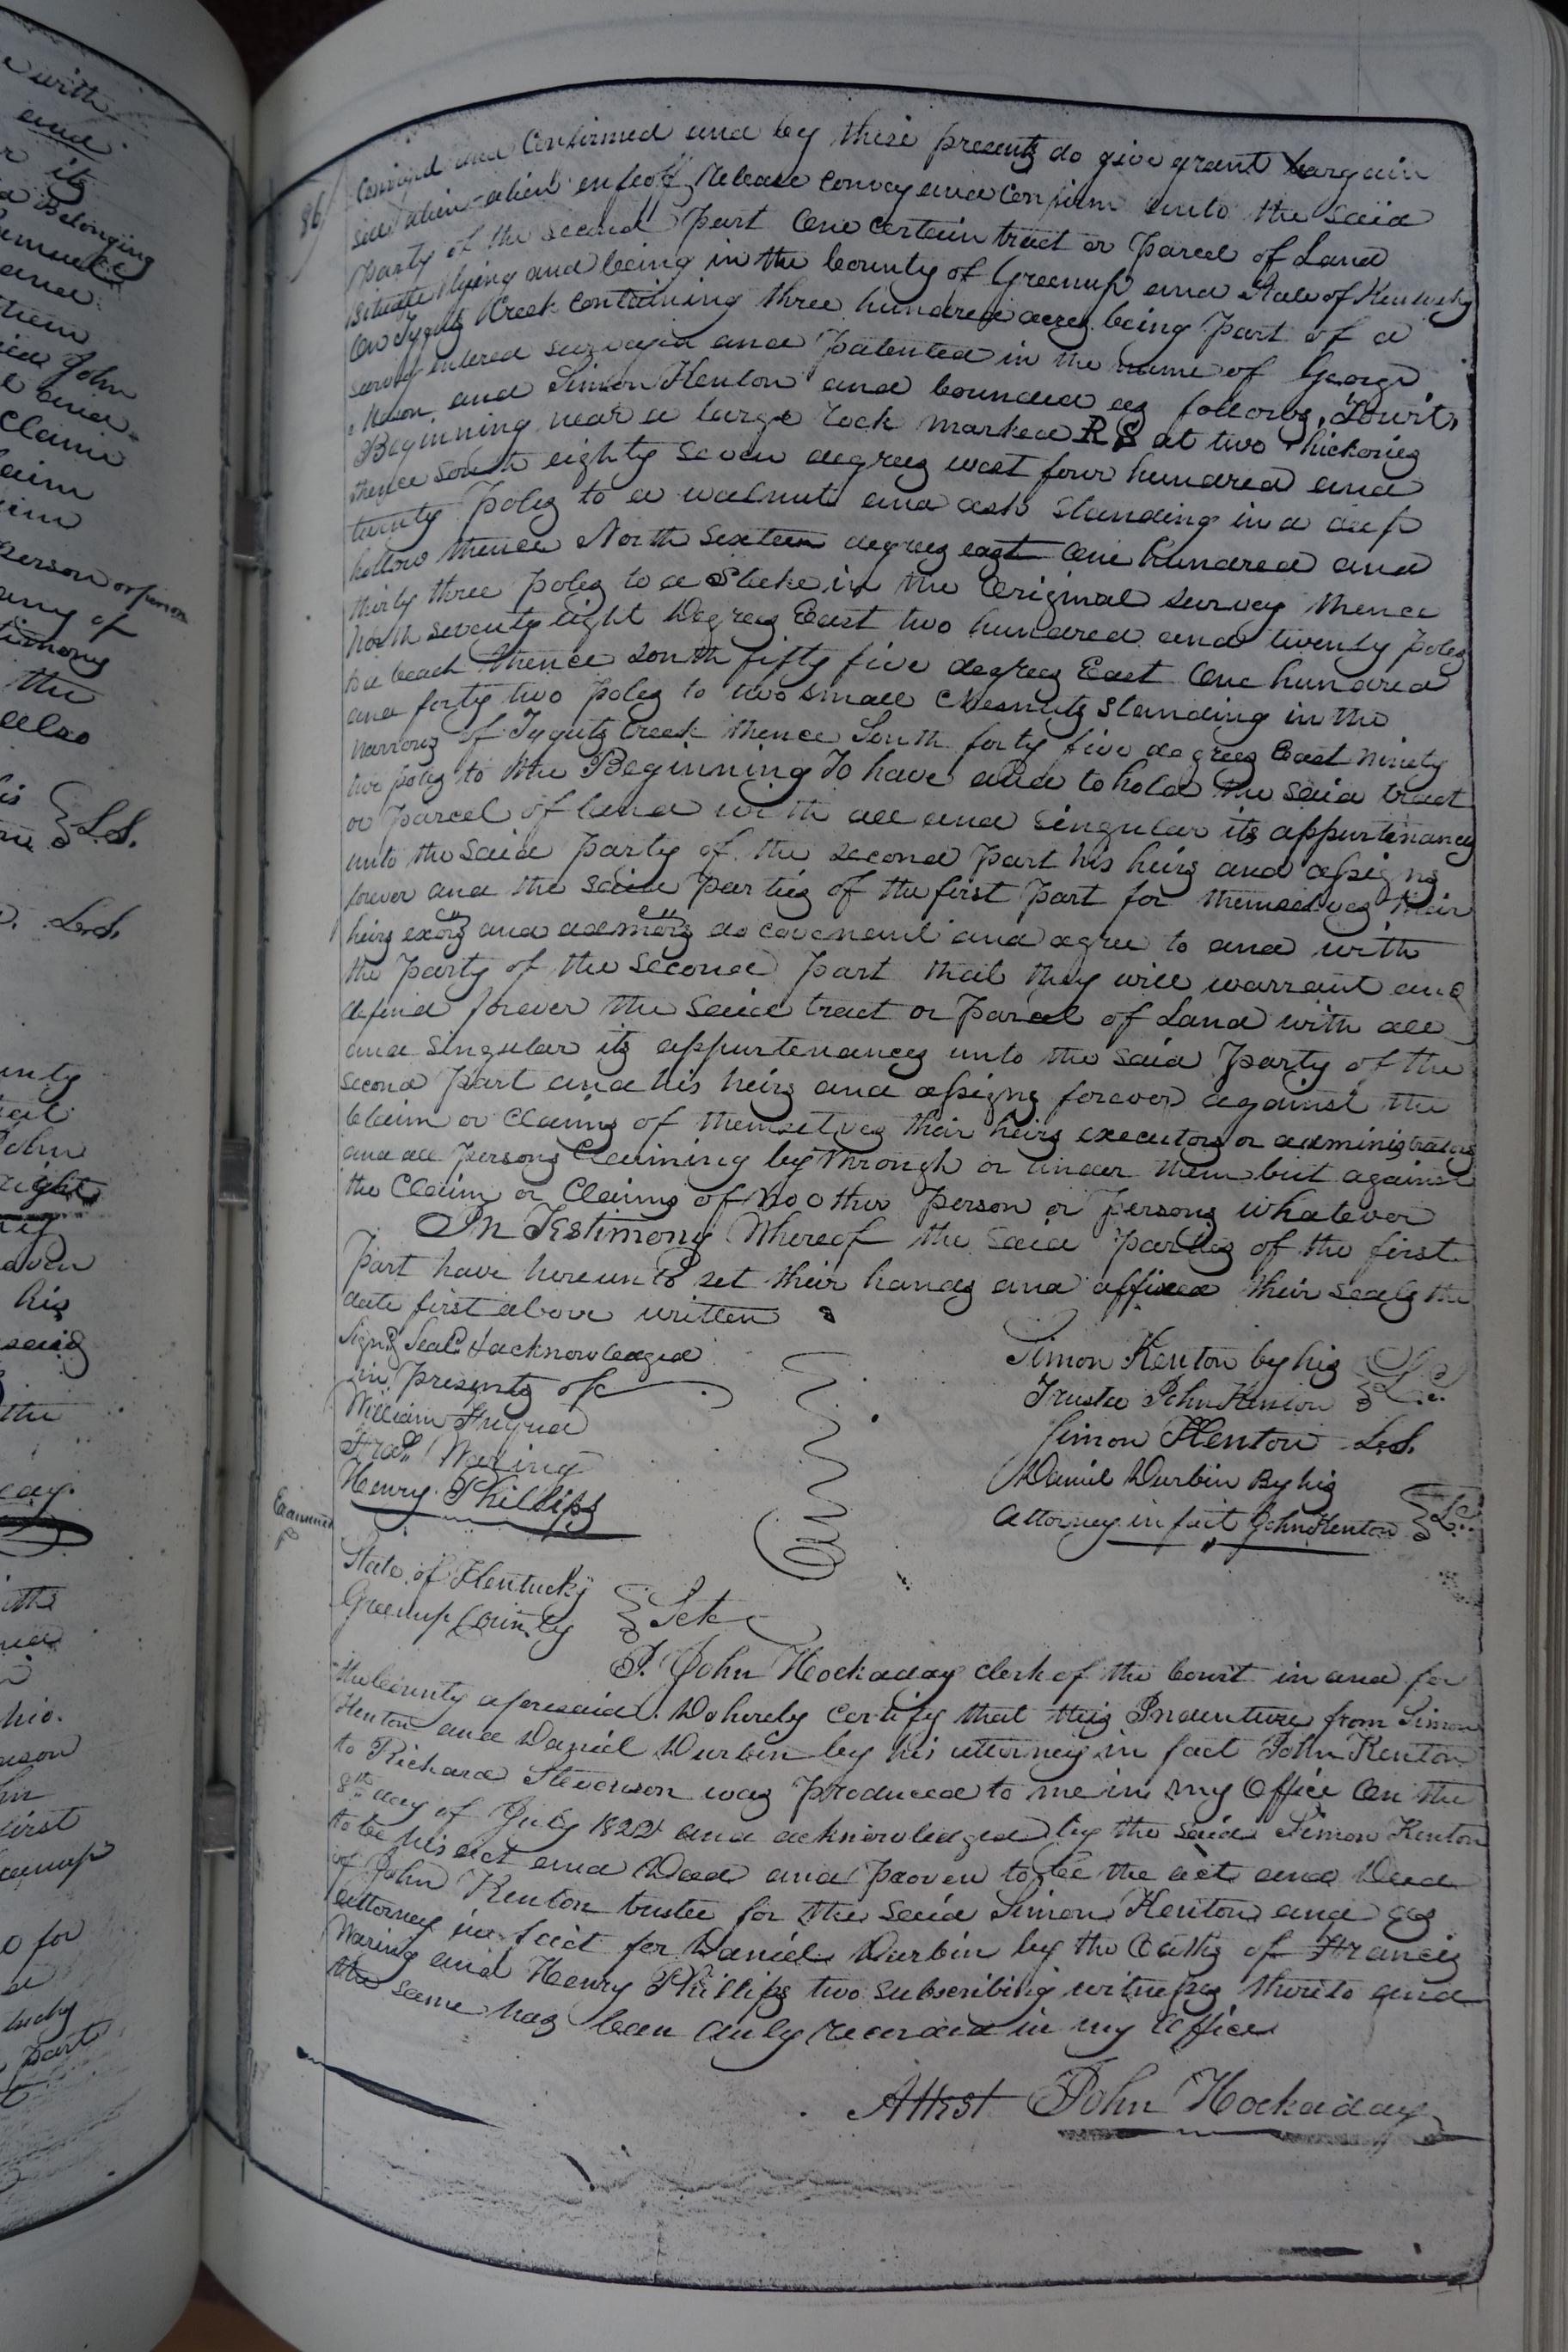 86
Conveyed and Confirmed and by these presents do give grant bargain
sell alien enfeoff Release convey and confirm unto the said
party of the second part One certain tract or parcel of Land
Situate lying and being in the County of Greenup and State of Kentucky
On Tyguts Creek containing three hundred acres being part of a
survey entered surveyed and patented in the name of George
Mason and Simon Kenton and bounded as follows, Towit,
Beginning near a large rock marked R S at two hickories
thence South eighty seven degrees west four hundred and
twenty poles to a walnut and ash standing in a deep
hollow thence North sixteen degrees east One hundred and
thirty three poles to a Stake in the Original survey thence
North seventy eight Degrees East two hundred and twenty poles
to a beach thence South fifty five degrees East One hundred
and forty two poles to two small Chesnuts standing in the
narrows of Tyguts Creek thence South forty five degrees East ninety
two poles to the Beginning To have and to hold the said tract
or parcel of land with all and singular its appurtenances
unto the said party of the second part his heirs and assigns
forever and the said parties of the first part for themselves their
heirs exors and admors do covenant and agree to and with
the party of the second part that they will warrant and
defend forever the said tract or parcel of Land with all
and singular its appurtenances unto the said party of the
second part and his heirs and assigns forever against the
Claim or Claims of themselves their heirs executors or administrators
and all persons Claiming by through or under them but against
the Claim or Claims of no other person or persons whatever
In Testimony Whereof the said parties of the first
part have hereunto set their hands and affixed their seals the
date first above written
Signd Seald & acknowledged
in presents of
William Fuqua
Fras Waring
Henry Phillips
Simon Kenton by his
Trustee John Kenton L.S.
Simon Kenton L.S.
Daniel Durbin By his
Attorney in fact John Kenton L.S.
Examined
State of Kentucky
Greenup County Sct
I. John Hockaday clerk of the Court in and for
the County aforesaid Do hereby certify that this Indenture from Simon
Kenton and Daniel Durbin by his attorney in fact John Kenton
to Richard Stevenson was produced to me in my Office On the
8th day of July 1822 and acknowledged by the said Simon Kenton
to be his act and Deed and proven to be the act and Deed
of John Kenton trustee for the said Simon Kenton and as
attorney in fact for Daniel Durbin by the Oaths of Francis
Waring and Henry Phillips two subscribing witnesses thereto and
the same has been duly recorded in my Office
Attest John Hockaday